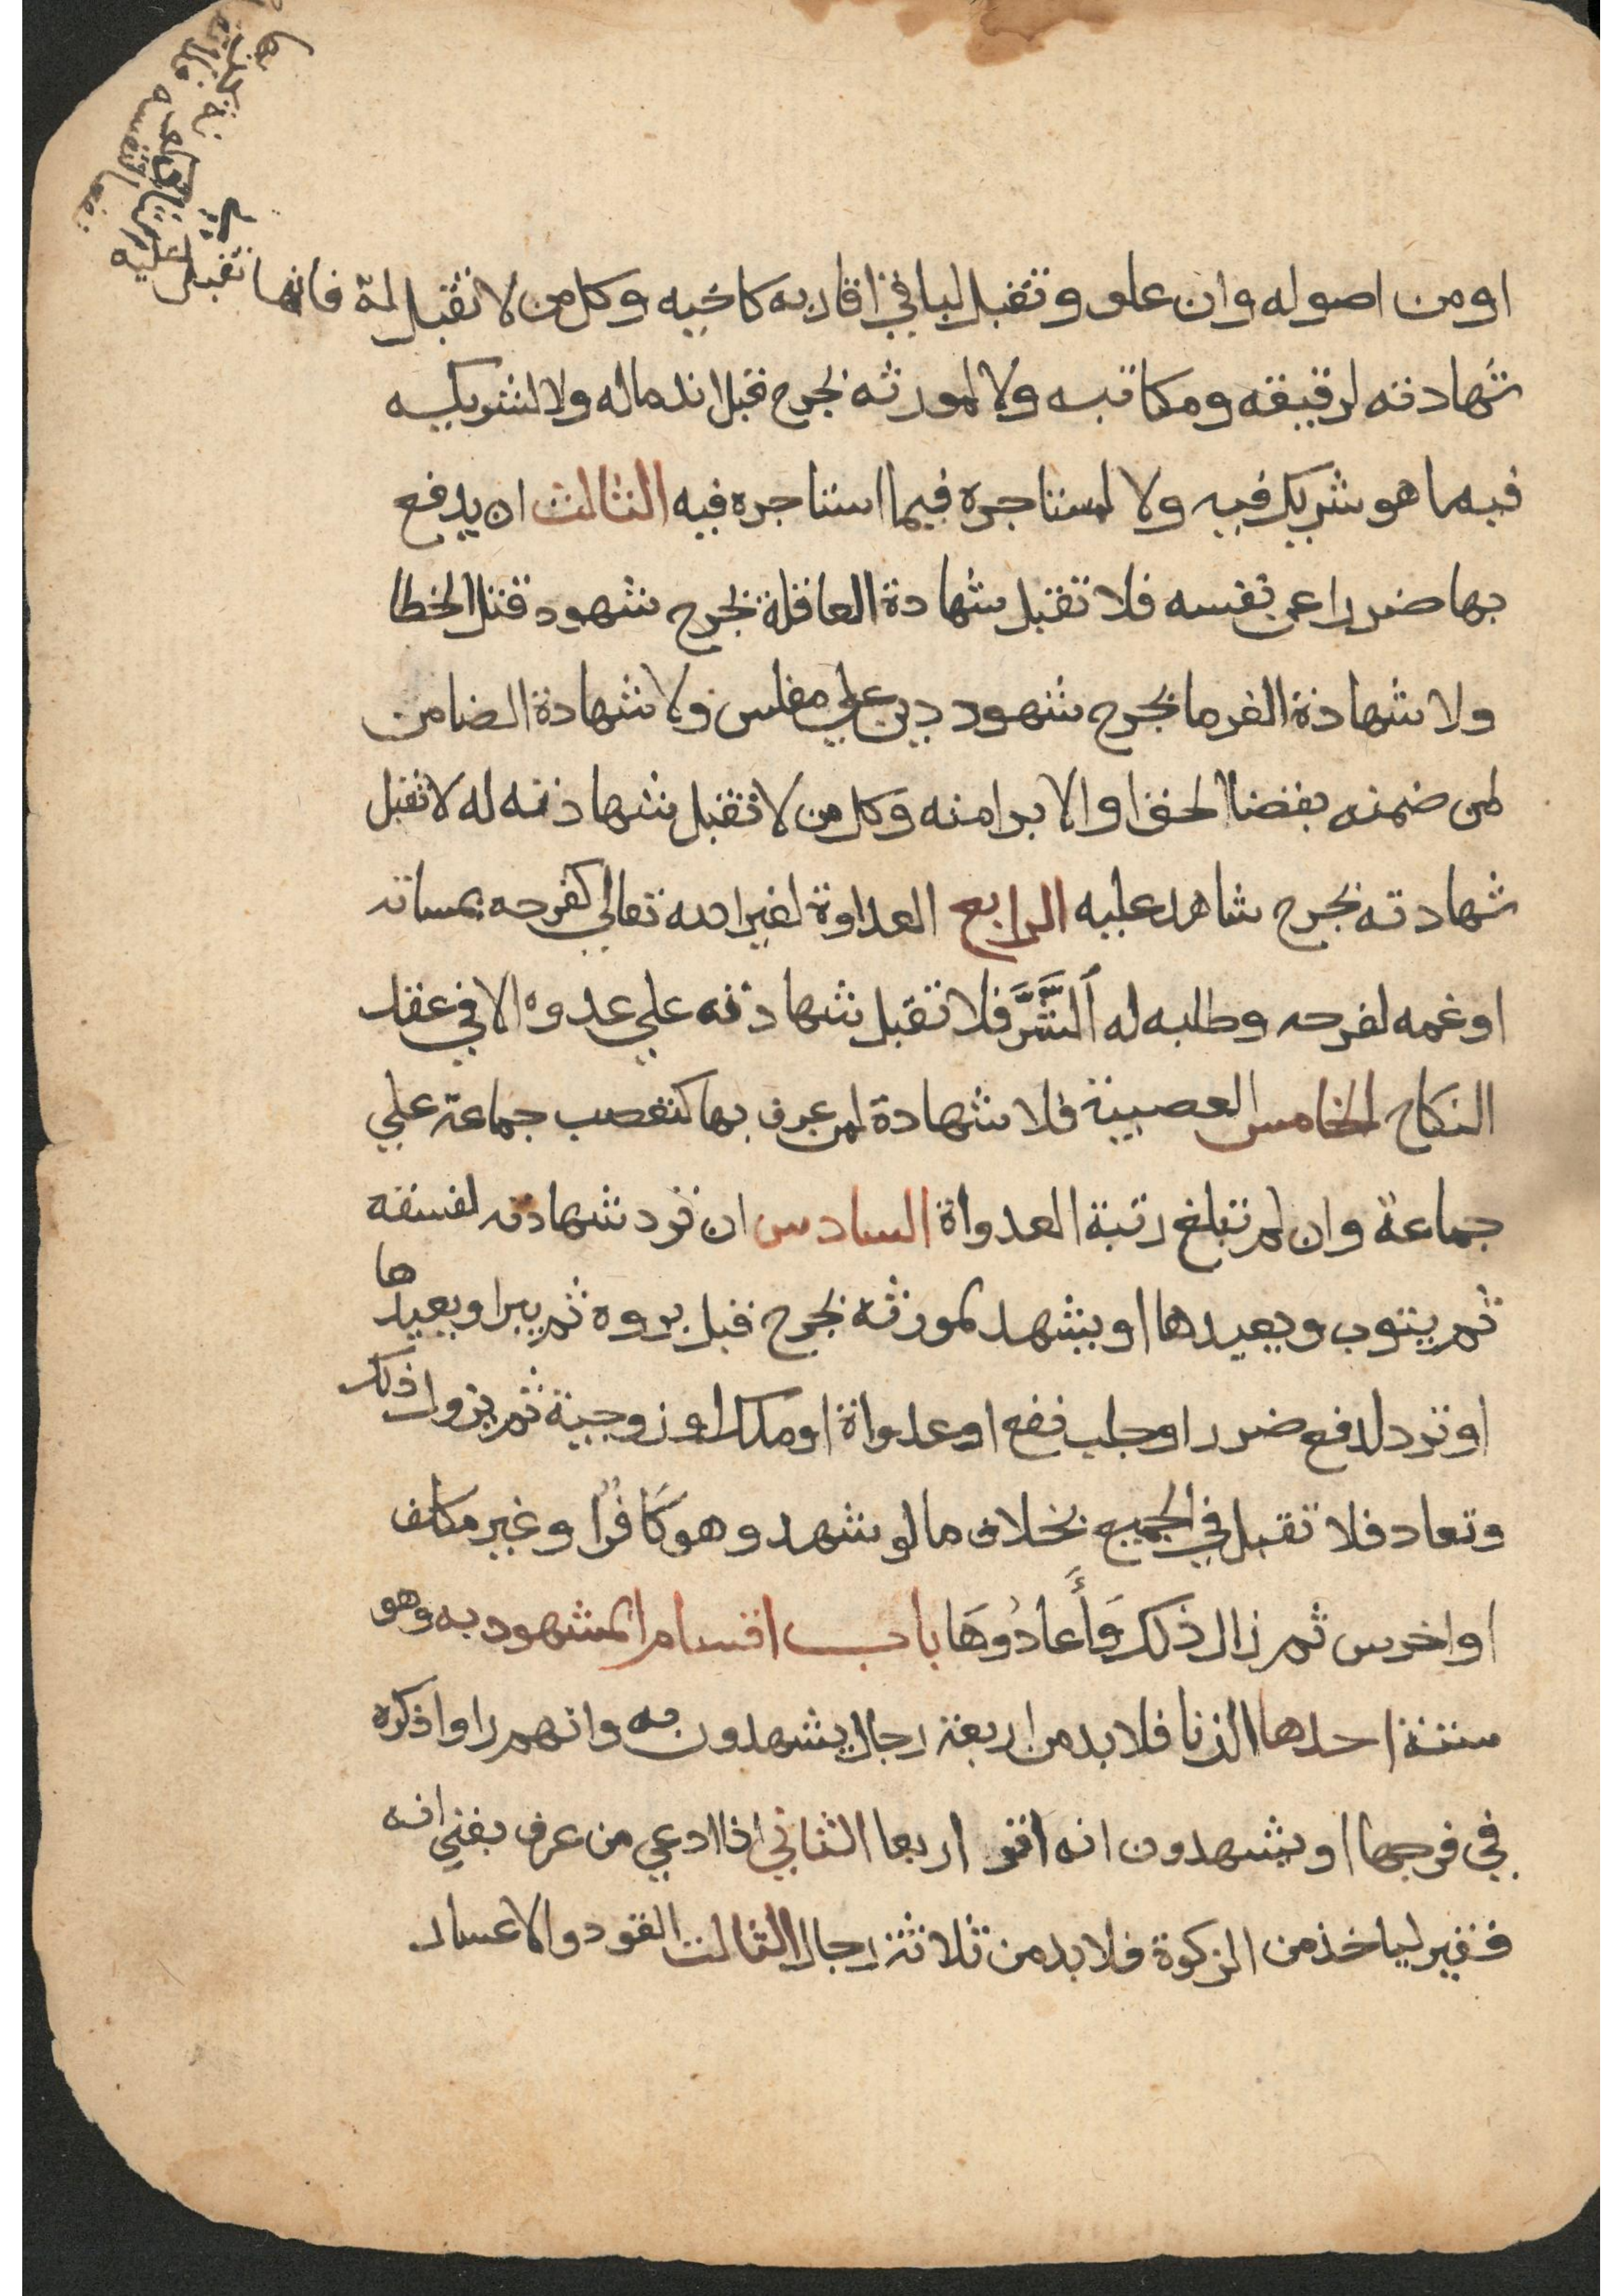 او من اصوله وان علو وتقبل لباقي اقاربه كاخيه وكل من لا تقبل له فانها تقبل عليه
شهادته لرقيقه ومكاتبه ولا لمورثه بجرح قبل اندماله ولا لشريكه
فيما هو شريك فيه ولا لمستاجره فيما استاجره فيه الثالث ان يدفع
بها ضررا عن نفسه فلا تقبل شهادة العاقلة بجرح شهود قتل الخطا
ولا شهادة الغرما بجرح شهود دين علي مفلس ولا شهادة الضامن
لمن ضمنه بقضا الحق او الابرا منه وكل من لا تقبل شهادته له لا تقبل
شهادته بجرح شاهد عليه الرابع العداوة لغير الله تعالي كفرحه بمساته
او غمه لفرحه وطلبه له الشَّرَّ فلا تقبل شهادته علي عدوه الا في عقد
النكاح الخامس العصبية فلا شهادة لمن عرف بها كتعصب جماعة علي
جماعة وان لم تبلغ رتبة العدواة السادس ان ترد شهادته لفسقه
ثم يتوب ويعيدها او يشهد لمورثه بجرح قبل بروه ثم يبرا ويعيدها
او ترد لدفع ضرر او جلب نفع او عدواة او ملك او زوجية ثم يزول ذلك
وتعاد فلا تقبل في الجميع بخلاف ما لو شهد وهو كَافُرًا وغير مكلف
او اخرس ثم زال ذلك وَأَعادُوهَا باب اقسام المشهود به وهو
ستة احدها الزنا فلا بد من اربعة رجال يشهدون به وانهم راوا ذكره
في فرجها او يشهدون انه اقر اربعا الثاني اذا ادعي من عرف بغني انه
فقير لياخذ من الزكوة فلا بد من ثلاثة رجال الثالث القود والاعسار